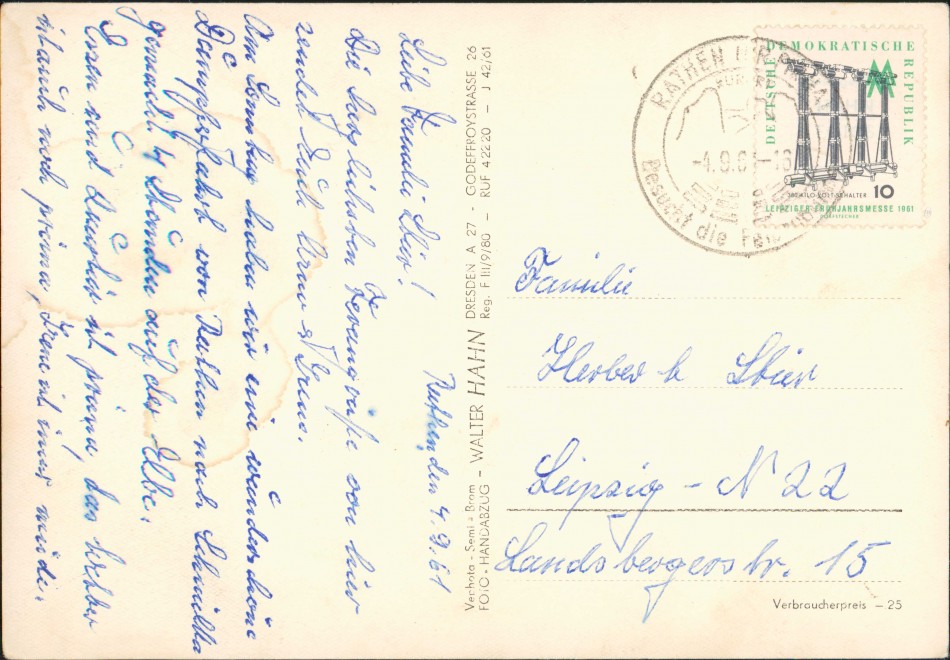 Rathen, den 4.9.61
Liebe Familie Stier!
Die herzlichsten Feriengrüße von hier
sendet Euch
Am Sonntag haben wir eine wunderschöne
Dampffahrt von Rathen nach Schmilka
gemacht. 4 Stunden auf der Elbe.
Essen und Quartier ist prima, das Wetter
ist auch noch prima, Irene ist immer müde.
Verhota - Semi a Brom
FOTO - HANDABZUG - WALTER HAHN DRESDEN A 27 - GODEFFROYSTRASSE 26
Reg. F III/9/80 - RUF 42220 - J 42/61
RATHEN
-4.9.61-18
Besucht die
DEUTSCHE DEMOKRATISCHE REPUBLIK
10
LEIPZIGER FRÜHJAHRSMESSE 1961
Familie
Herbert Stier
Leipzig - N 22
Landsbergerstr. 15
Verbraucherpreis - 25